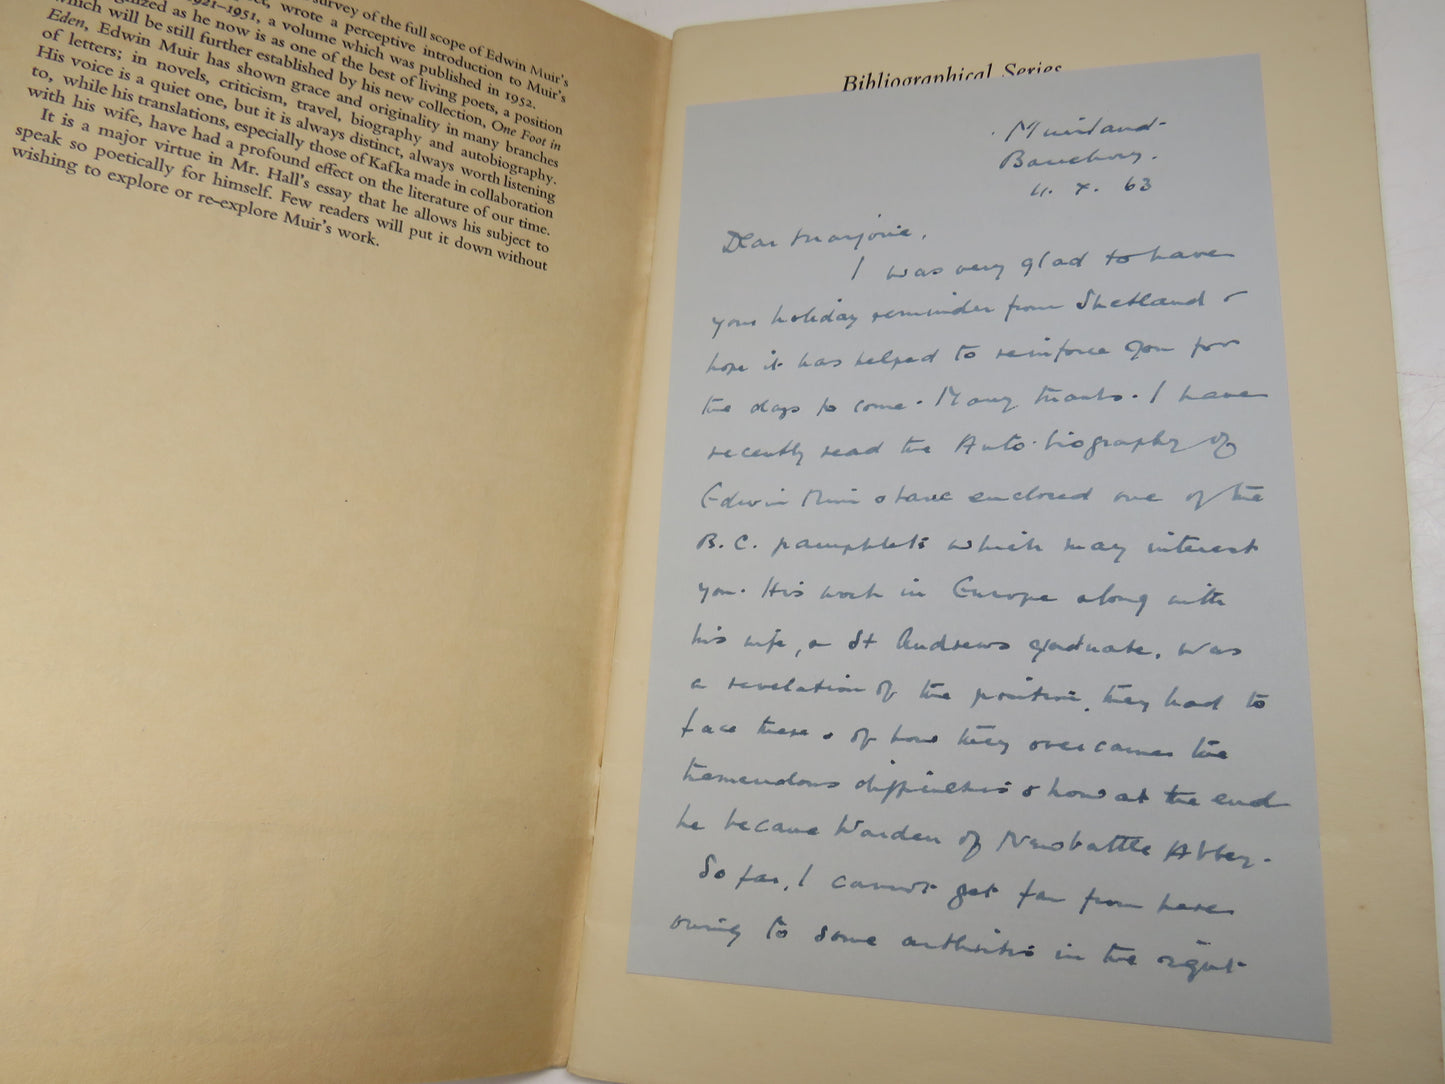 survey of the full scope of Edwin Muir's
wrote a perceptive introduction to Muir's
1921–1951, a volume which was published in 1952.
as he now is as one of the best of living poets, a position
which will be still further established by his new collection, One Foot in
Eden, Edwin Muir has shown grace and originality in many branches
of letters; in novels, criticism, travel, biography and autobiography.
His voice is a quiet one, but it is always distinct, always worth listening
to, while his translations, especially those of Kafka made in collaboration
with his wife, have had a profound effect on the literature of our time.
It is a major virtue in Mr. Hall's essay that he allows his subject to
speak so poetically for himself. Few readers will put it down without
wishing to explore or re-explore Muir's work.
Bibliographical Series
Banchory.
4. X. 63
Dear Marjorie,
I was very glad to have
your holiday reminder from Shetland &
hope it has helped to reinforce you for
the days to come. Many thanks. I have
recently read the Auto-biography of
Edwin Muir & have enclosed one of the
B.C. pamphlets which may interest
you. His work in Europe along with
his wife, a St Andrews graduate, was
a revelation of the position, they had to
face there & of how they overcame the
tremendous difficulties & how at the end
he became Warden of Newbattle Abbey.
So far, I cannot get far from here
owing to some arthritis in the right